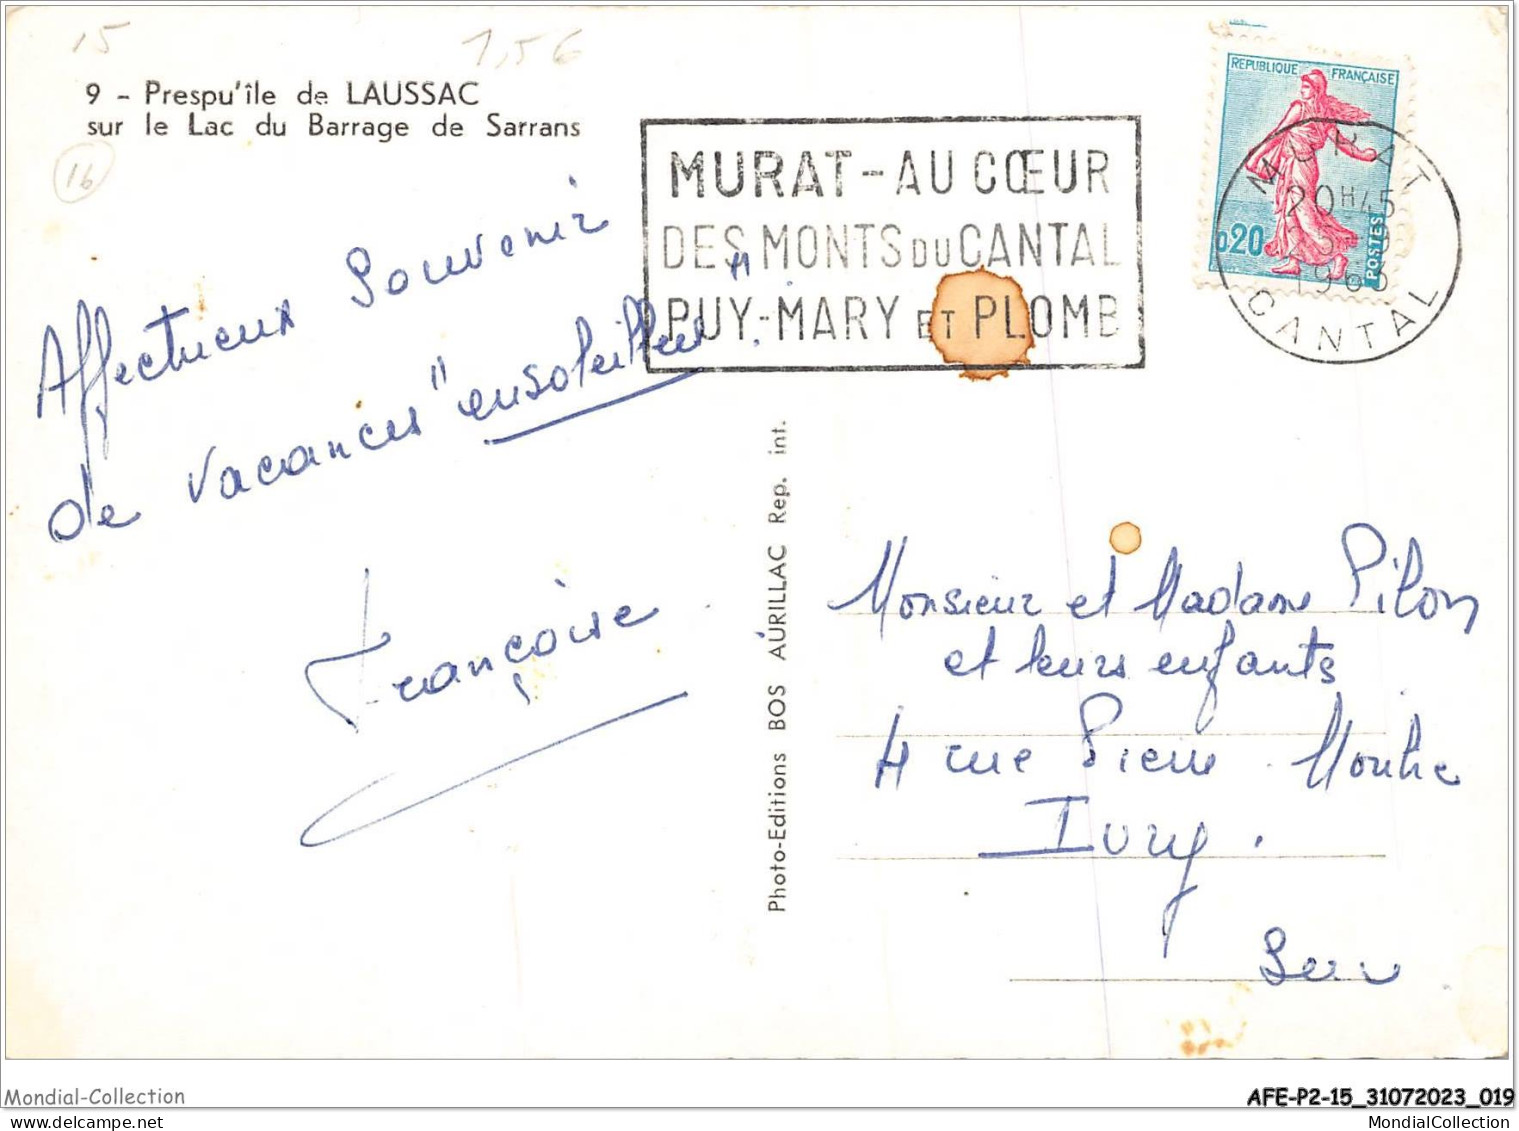 15
1,5€
9 - Prespu'île de LAUSSAC
sur le Lac du Barrage de Sarrans
16
MURAT - AU CŒUR
DES MONTS DU CANTAL
PUY-MARY ET PLOMB
REPUBLIQUE FRANÇAISE
0,20
POSTES
MURAT
20H45
1963
CANTAL
Affectueux Souvenir
de vacances "ensoleillées".
Françoise.
Photo-Editions BOS AURILLAC Rep. int.
Monsieur et Madame Pilon
et leurs enfants
4 rue Pierre Moulie
Ivry.
Seine
Mondial-Collection
AFE-P2-15_31072023_019
delcampe.net
MondialCollection